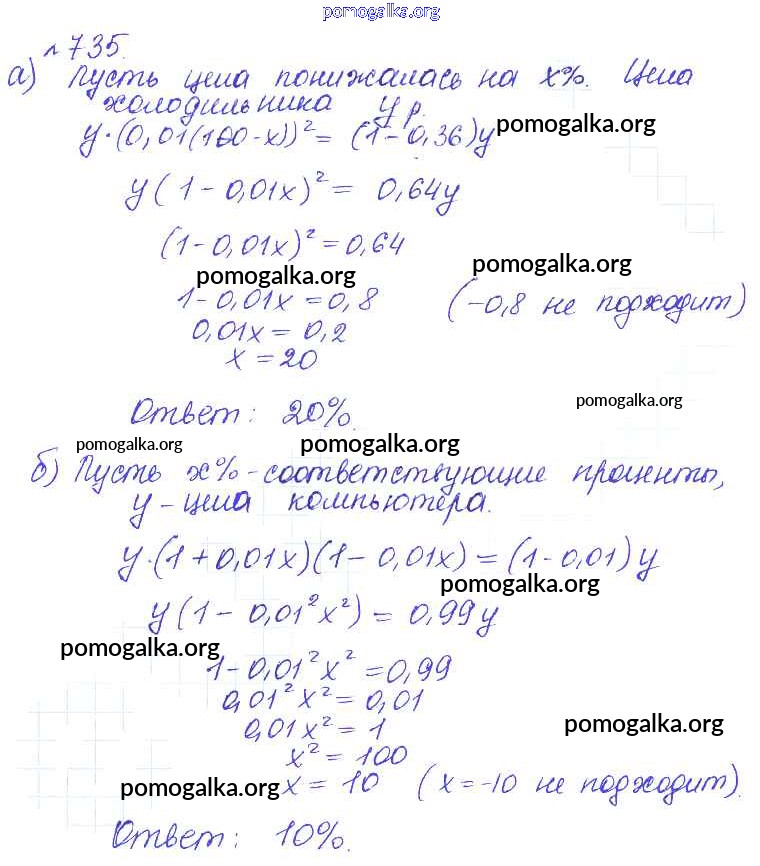 pomogalka.org
№735.
а) Пусть цена понижалась на x%. Цена
холодильника y р.
y·(0,01(100-x))² = (1-0,36)y pomogalka.org
y(1-0,01x)² = 0,64y
(1-0,01x)² = 0,64
pomogalka.org pomogalka.org
1-0,01x = 0,8 (-0,8 не подходит)
0,01x = 0,2
x = 20
Ответ: 20%. pomogalka.org
pomogalka.org pomogalka.org
б) Пусть x% - соответствующие проценты,
y - цена компьютера.
y·(1+0,01x)(1-0,01x) = (1-0,01)y
pomogalka.org
y(1-0,01²x²) = 0,99y
pomogalka.org
1-0,01²x² = 0,99
0,01²x² = 0,01
0,01x² = 1 pomogalka.org
x² = 100
pomogalka.org x = 10 (x = -10 не подходит).
Ответ: 10%.